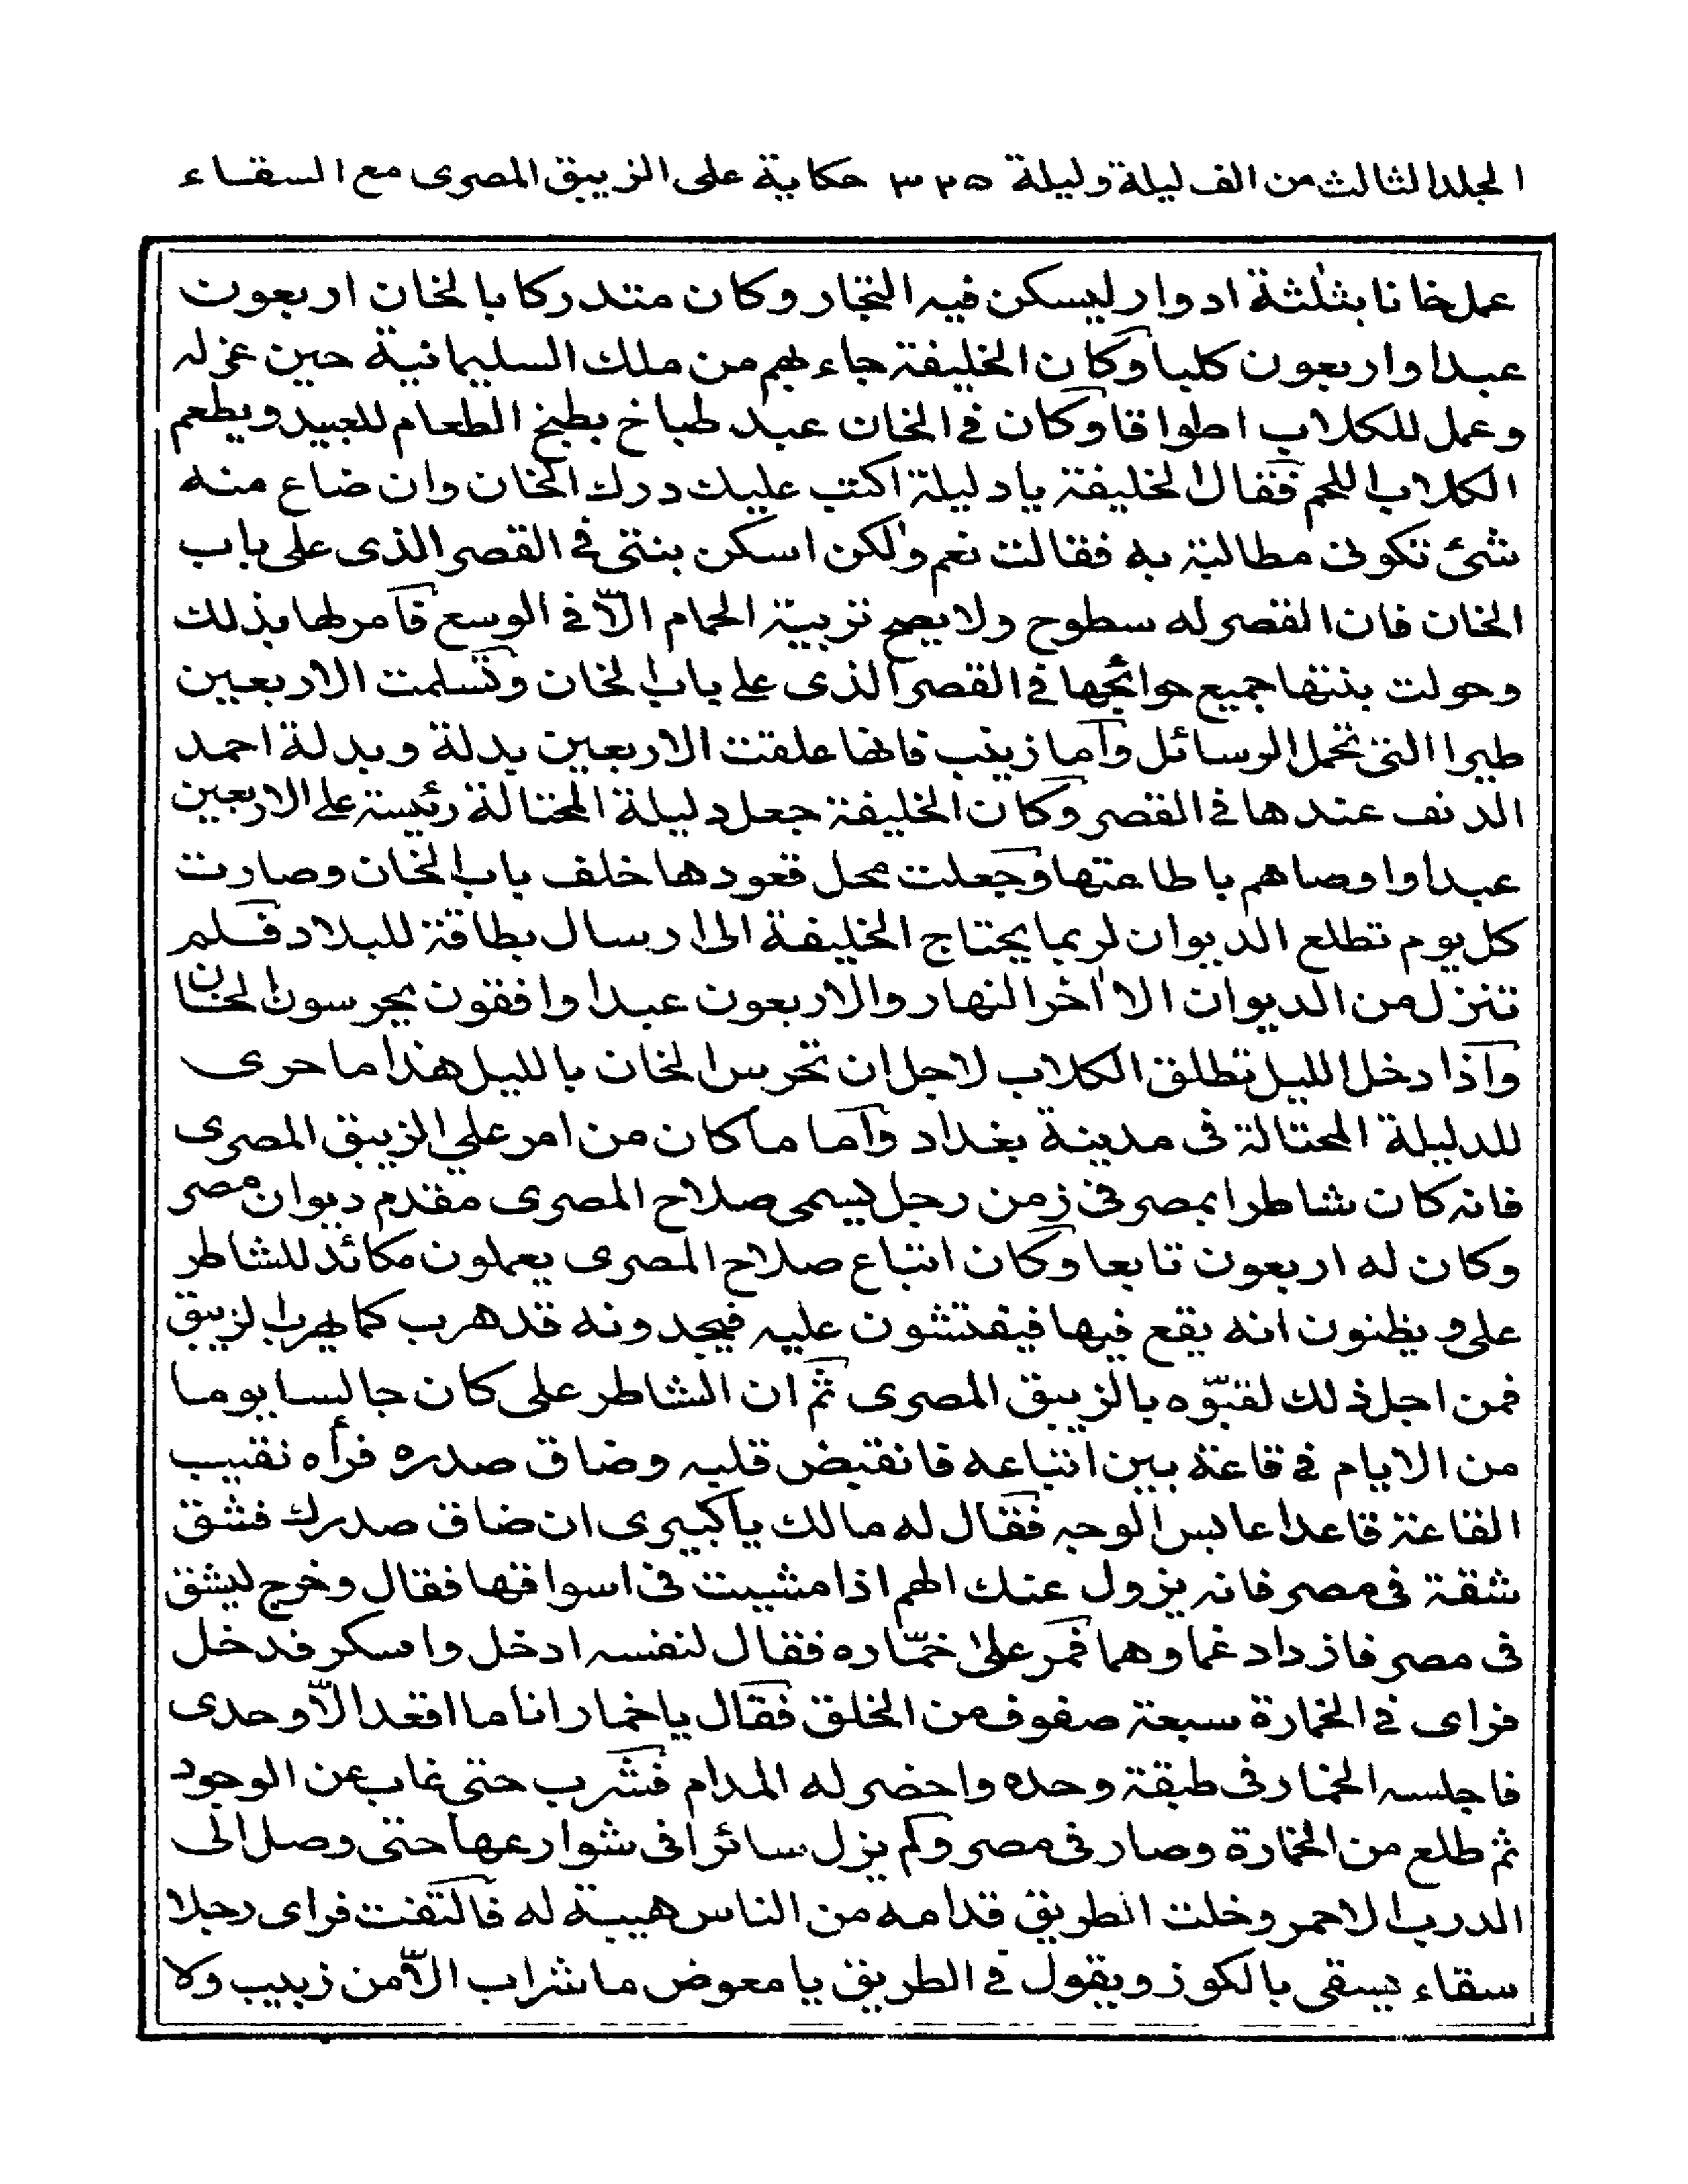 المجلد الثالث من الف ليلة وليلة ٣٣٥ حكاية على الزيبق المصرى مع السقاء
عمل خانا بثلٰثة ادوار ليسكن فيه التجار وكان متدركا بالخان اربعون
عبدا واربعون كلبا وكان الخليفة جاء بهم من ملك السليمانية حين عزله
وعمل للكلاب اطواقا وكان فى الخان عبد طباخ يطبخ الطعام للعبيد ويطعم
الكلاب اللحم فقال الخليفة يا دليلة اكتب عليك درك الخان وان ضاع منه
شئ تكونى مطالبة به فقالت نعم ولٰكن اسكن بنتى فى القصر الذى على باب
الخان فان القصر له سطوح ولا يصح تربية الحمام الّا فى الوسع فامر لها بذلك
وحولت بنتها جميع حوائجها فى القصر الذى على باب الخان وتسلمت الاربعين
طيرا التى تحمل الوسائل وآما زينب فانها علقت الاربعين بدلة وبدلة احمد
الدنف عندها فى القصر وكان الخليفة جعل دليلة المحتالة رئيسة على الاربعين
عبدا واوصاهم باطاعتها وجعلت محل قعودها خلف باب الخان وصارت
كل يوم تطلع الديوان لربما يحتاج الخليفة الى ارسال بطاقة للبلاد فلم
تنزل من الديوان الا اٰخر النهار والاربعون عبدا واقفون يحرسون الخان
وآذا دخل الليل تطلق الكلاب لاجل ان تحرس الخان بالليل هٰذا ما جرى
للدليلة المحتالة فى مدينة بغداد وآما ما كان من امر على الزيبق المصرى
فانه كان شاطرا بمصر فى زمن رجل يسمى صلاح المصرى مقدم ديوان مصر
وكان له اربعون تابعا وكان اتباع صلاح المصرى يعملون مكائد للشاطر
على ويظنون انه يقع فيها فيفتشون عليه فيجدونه قد هرب كما يهرب الزيبق
فمن اجل ذلك لقبّوه بالزيبق المصرى ثم ان الشاطر على كان جالسا يوما
من الايام فى قاعة بين اتباعه فانقبض قلبه وضاق صدره فرأه نقيب
القاعة قاعدا عابس الوجه فقال له مالك يا كبيرى ان ضاق صدرك فشق
شقة فى مصر فانه يزول عنك الهم اذا مشيت فى اسواقها فقال وخرج ليشق
فى مصر فازداد غما وهما فمر علىٰ خمّاره فقال لنفسه ادخل واسكر فدخل
فراى فى الخمارة سبعة صفوف من الخلق فقال يا خمار انا ما اقعد الّا وحدى
فاجلسه الخمار فى طبقة وحده واحضر له المدام فشرب حتى غاب عن الوجود
ثم طلع من الخمارة وصار فى مصر ولم يزل سائرا فى شوارعها حتى وصل الى
الدرب الاحمر وخلت الطريق قدامه من الناس هيبة له فالتفت فراى رجلا
سقاء يسقى بالكوز ويقول فى الطريق يا معوض ما شراب الّا من زبيب ولا